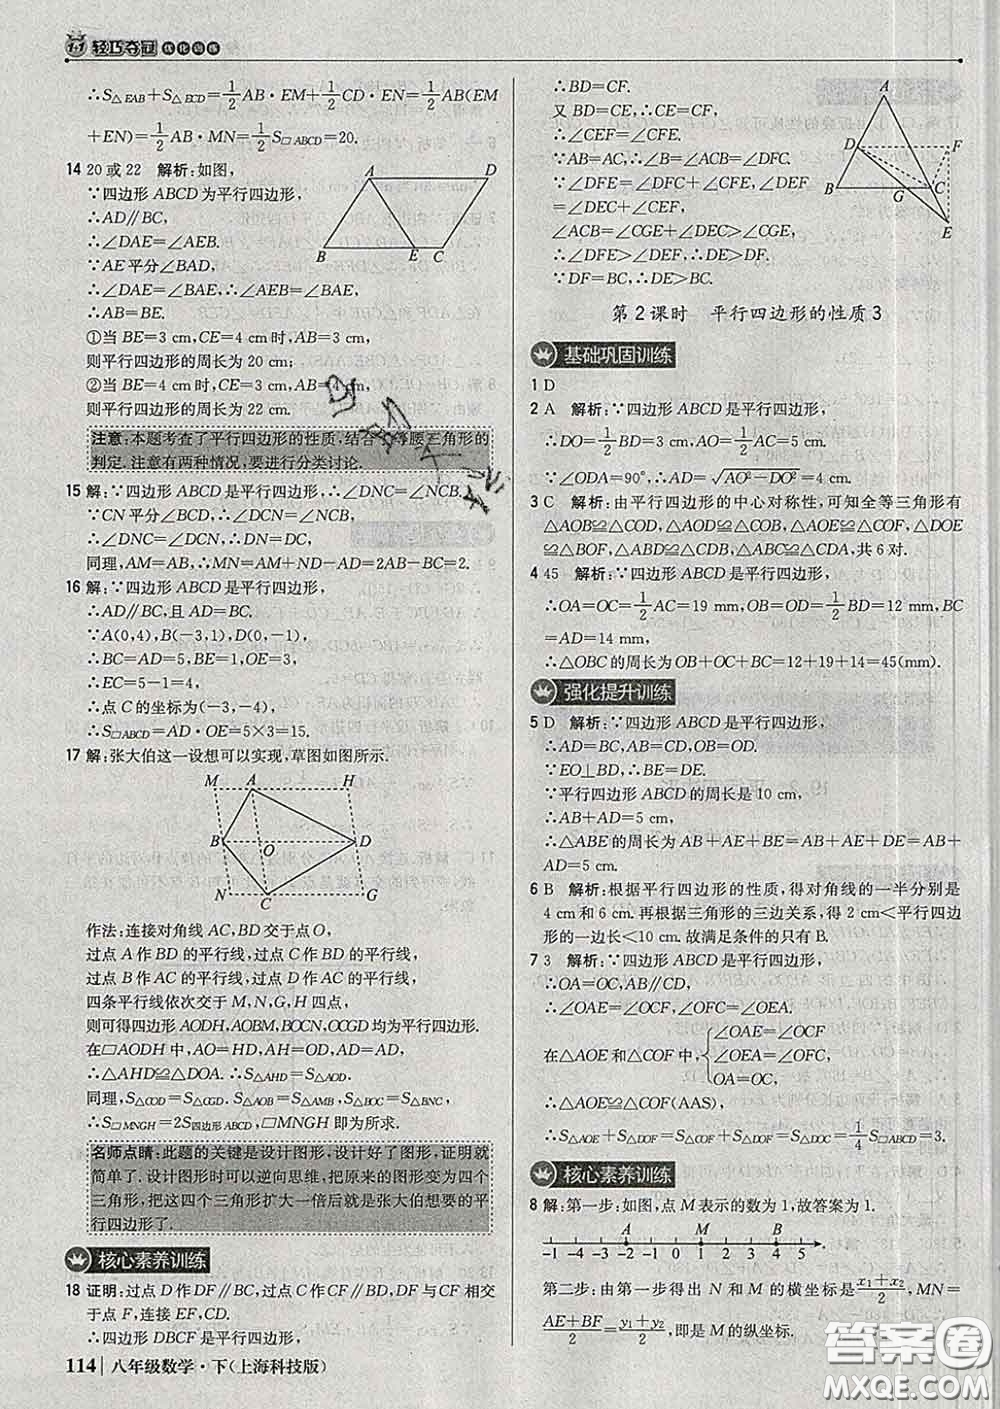 1+1 轻巧夺冠 优化训练
∴S△EAB+S△ECD=1/2AB·EM+1/2CD·EN=1/2AB(EM
+EN)=1/2AB·MN=1/2S□ABCD=20.
14 20或22 解析:如图,
∵四边形ABCD为平行四边形,
∴AD∥BC,
∴∠DAE=∠AEB.
∵AE平分∠BAD,
∴∠BAE=∠DAE,
∴∠BAE=∠AEB,
∴AB=BE.
A D
B E C
①当BE=3 cm,CE=4 cm时,AB=3 cm,
则平行四边形的周长为20 cm;
②当BE=4 cm时,CE=3 cm,AB=4 cm,
则平行四边形的周长为22 cm.
注意:本题考查了平行四边形的性质,结合了等腰三角形的
判定.注意有两种情况,要进行分类讨论.
15 解:∵四边形ABCD是平行四边形,∴∠DNC=∠NCB.
∵CN平分∠BCD,∴∠DCN=∠NCB,
∴∠DNC=∠DCN,∴DN=DC,
同理,AM=AB,∴MN=AM+DN-AD=2AB-BC=2.
16 解:∵四边形ABCD是平行四边形,
∴AD∥BC,且AD=BC.
∵A(0,4),B(-3,1),D(0,-1),
∴BC=AD=5,BE=1,OE=3,
∴EC=5-1=4,
∴点C的坐标为(-3,-4),
∴S□ABCD=AD·OE=5×3=15.
17 解:张大伯这一设想可以实现,草图如图所示.
M A H
B O D
N C G
作法:连接对角线AC,BD交于点O,
过点A作BD的平行线,过点B作AC的平行线,
过点C作BD的平行线,过点D作AC的平行线,
四条平行线依次交于M,N,G,H四点,
则可得四边形AODH,AOBM,BOCN,OCGD均为平行四边形.
在□AODH中,AO=HD,AH=OD,AD=DA,
∴△AHD≌△DOA.∴S△AHD=S△AOD.
同理,S△COD=S△CGD.S△AOB=S△AMB,S△BOC=S△BNC,
∴S□MNGH=2S四边形ABCD,□MNGH即为所求.
名师点睛:此题的关键是设计图形,设计好了图形,证明就
简单了.设计图形时可以逆向思维,把原来的图形变为四个
三角形,把这四个三角形扩大一倍后就是张大伯想要的平
行四边形了.
核心素养训练
18 证明:过点D作DF∥BC,过点C作CF∥BD,DF与CF相交
于点F,连接EF,CD.
∴四边形DBCF是平行四边形,
114 八年级数学·下(上海科技版)
∴BD=CF.
又BD=CE,∴CF=CE,
∴∠CEF=∠CFE.
∵AB=AC,∴∠ABC=∠ACB.
∵∠DFE=∠DFC+∠CFE,∠DEF
=∠DEC+∠CEF,
∠ACB=∠CGE+∠DEC>∠DEC,
∴∠DFE>∠DEF,∴DE>DF.
∵DF=BC,∴DE>BC.
A
D F
B G C
E
第2课时 平行四边形的性质3
基础巩固训练
1 D
2 A 解析:∵四边形ABCD是平行四边形,
∴DO=1/2BD=3 cm,AO=1/2AC=5 cm.
∵∠ODA=90°,∴AD=√(AO²-DO²)=4 cm.
3 C 解析:由平行四边形的中心对称性,可知全等三角形有
△AOB≌△COD,△AOD≌△COB,△AOE≌△COF,△DOE
≌△BOF,△ABD≌△CDB,△ABC≌△CDA,共6对.
4 45 解析:∵四边形ABCD是平行四边形,
∴OA=OC=1/2AC=19 mm,OB=OD=1/2BD=12 mm,BC
=AD=14 mm,
∴△OBC的周长为OB+OC+BC=12+19+14=45(mm).
强化提升训练
5 D 解析:∵四边形ABCD是平行四边形,
∴AD=BC,AB=CD,OB=OD.
∵EO⊥BD,∴BE=DE.
∵平行四边形ABCD的周长是10 cm,
∴AB+AD=5 cm,
∴△ABE的周长为AB+BE+AE=AB+AE+DE=AB+
AD=5 cm.
6 B 解析:根据平行四边形的性质,得对角线的一半分别是
4 cm和6 cm.再根据三角形的三边关系,得2 cm<平行四
边形的一边长<10 cm.故满足条件的只有B.
7 3 解析:∵四边形ABCD是平行四边形,
∴OA=OC,AB∥CD,
∴∠OAE=∠OCF,∠OFC=∠OEA.
在△AOE和△COF中,{∠OAE=∠OCF
∠OEA=∠OFC,
OA=OC,
∴△AOE≌△COF(AAS),
∴S△AOE+S△DOF=S△COF+S△DOF=S△COD=1/4S□ABCD=3.
核心素养训练
8 解:第一步:如图,点M表示的数为1,故答案为1.
A M B
-1 -4 -3 -2 -1 0 1 2 3 4 5 6
第二步:由第一步得出N和M的横坐标是(x₁+x₂)/2,MN=
(AE+BF)/2=(y₁+y₂)/2,即是M的纵坐标.
答案圈
MXQE.COM